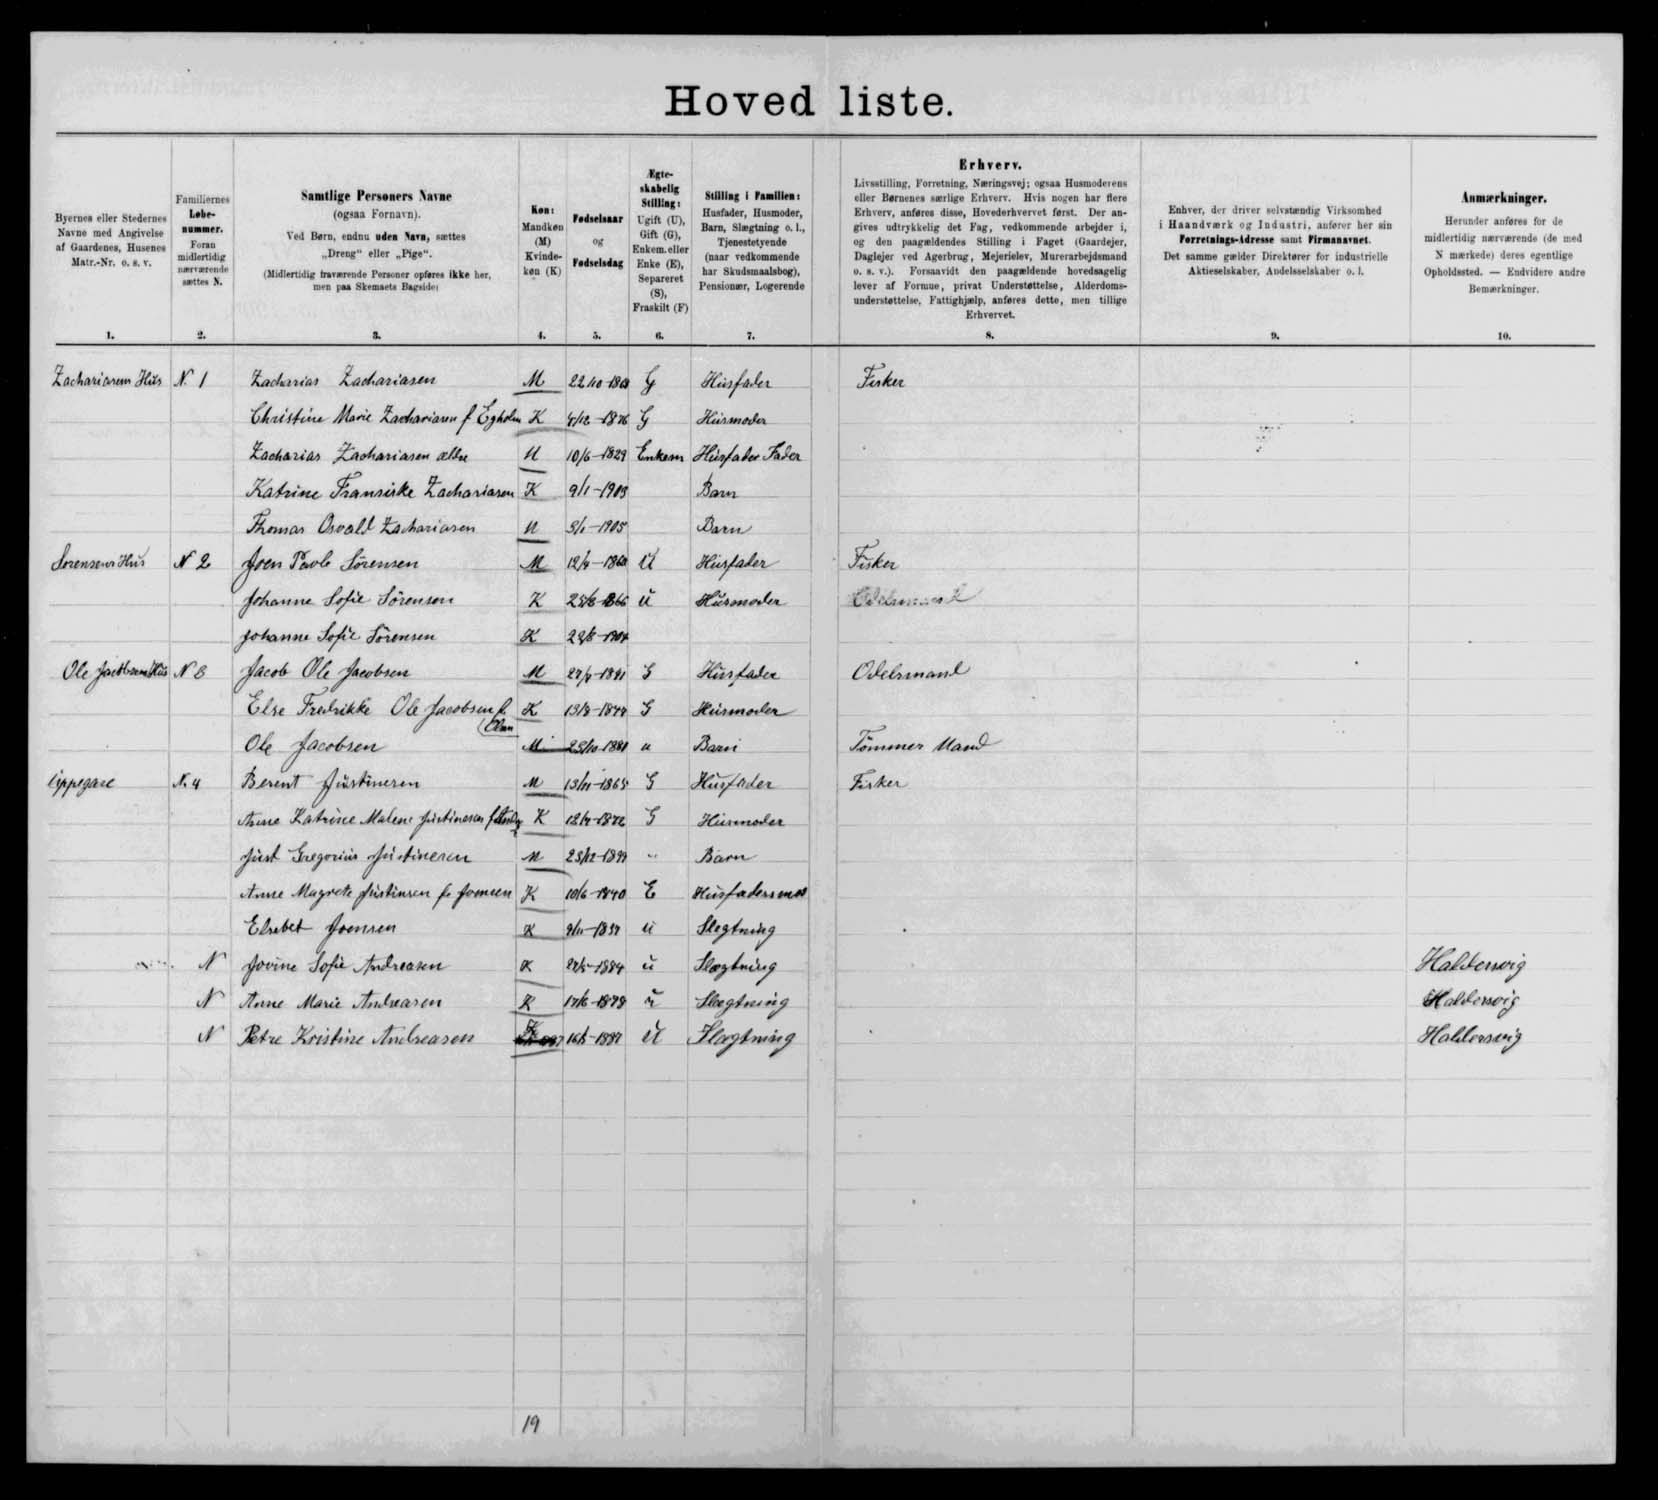 Hoved liste.
Byernes eller Stedernes
Navne med Angivelse
af Gaardenes, Husenes
Matr.-Nr. o. s. v.
1.
Familiernes
Løbe-
nummer.
Foran
midlertidig
nærværende
sættes N.
2.
Samtlige Personers Navne
(ogsaa Fornavn).
Ved Børn, endnu uden Navn, sættes
„Dreng“ eller „Pige“.
(Midlertidig fraværende Personer opføres ikke her,
men paa Skemaets Bagside)
3.
Køn:
Mandkøn
(M)
Kvinde-
køn (K)
4.
Fødselsaar
og
Fødselsdag
5.
Ægte-
skabelig
Stilling:
Ugift (U),
Gift (G),
Enkem. eller
Enke (E),
Separeret
(S),
Fraskilt (F)
6.
Stilling i Familien:
Husfader, Husmoder,
Barn, Slægtning o. l.,
Tjenestetyende
(naar vedkommende
har Skudsmaalsbog),
Pensionær, Logerende
7.
Erhverv.
Livsstilling, Forretning, Næringsvej; ogsaa Husmoderens
eller Børnenes særlige Erhverv. Hvis nogen har flere
Erhverv, anføres disse, Hovederhvervet først. Der an-
gives udtrykkelig det Fag, vedkommende arbejder i,
og den paagældendes Stilling i Faget (Gaardejer,
Daglejer ved Agerbrug, Mejerielev, Murerarbejdsmand
o. s. v.). Forsaavidt den paagældende hovedsagelig
lever af Formue, privat Understøttelse, Alderdoms-
understøttelse, Fattighjælp, anføres dette, men tillige
Erhvervet.
8.
Enhver, der driver selvstændig Virksomhed
i Haandværk og Industri, anfører her sin
Forretnings-Adresse samt Firmanavnet.
Det samme gælder Direktører for industrielle
Aktieselskaber, Andelsselskaber o. l.
9.
Anmærkninger.
Herunder anføres for de
midlertidig nærværende (de med
N mærkede) deres egentlige
Opholdssted. — Endvidere andre
Bemærkninger.
10.
Zachariasens Hus N. 1 Zacharias Zachariasen M 22/10-18 G Husfader Fisker
Christine Marie Zachariasen f Egholm K 4/12-1876 G Husmoder
Zacharias Zachariasen ældre M 10/6-1829 Enkem Husfader Fader
Katrine Fransiske Zachariasen K 9/1-1903 Barn
Thomas Osvald Zachariasen M 3/1-1905 Barn
Sørensens Hus N 2 Joen Pavle Sörensen M 12/4-1860 U Husfader Fisker
Johanne Sofie Sörensen K 25/8-1866 u Husmoder Odelsmand
Johanne Sofie Sörensen K 22/8-1904
Ole Jacobsens Hus N 3 Jacob Ole Jacobsen M 27/7-1841 G Husfader Odelsmand
Else Fredrikke Ole Jacobsen f. K 13/8-1844 G Husmoder
Olsen
Ole Jacobsen M 23/10-1881 u Barn Tömmer Mand
N. 4 Berent Justinesen M 13/11-1865 G Husfader Fisker
Anne Katrine Malene Justinesen f K 12/4-1872 G Husmoder
Just Gregorius Justinesen M 23/12-1899 " Barn
Anne Magrete Justinsen f. Joensen K 10/6-1840 E Husfadersmod
Elsebet Joensen K 9/11-1837 u Slegtning
N Jovine Sofie Andreasen K 27/5-1884 u Slægtning Haldersvig
N Anne Marie Andreasen K 17/6-1878 u Slægtning Haldersvig
N Petre Kristine Andreasen K 16/5-1887 U Slægtning Haldersvig
19